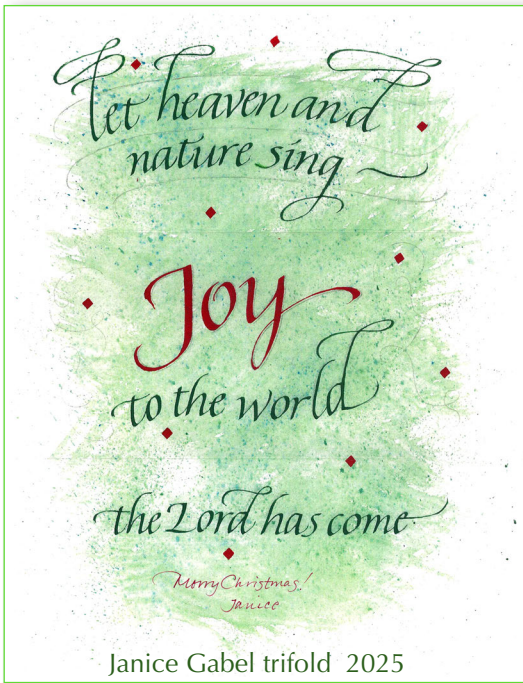 let heaven and
nature sing
Joy
to the world
the Lord has come
Merry Christmas!
Janice
Janice Gabel trifold 2025